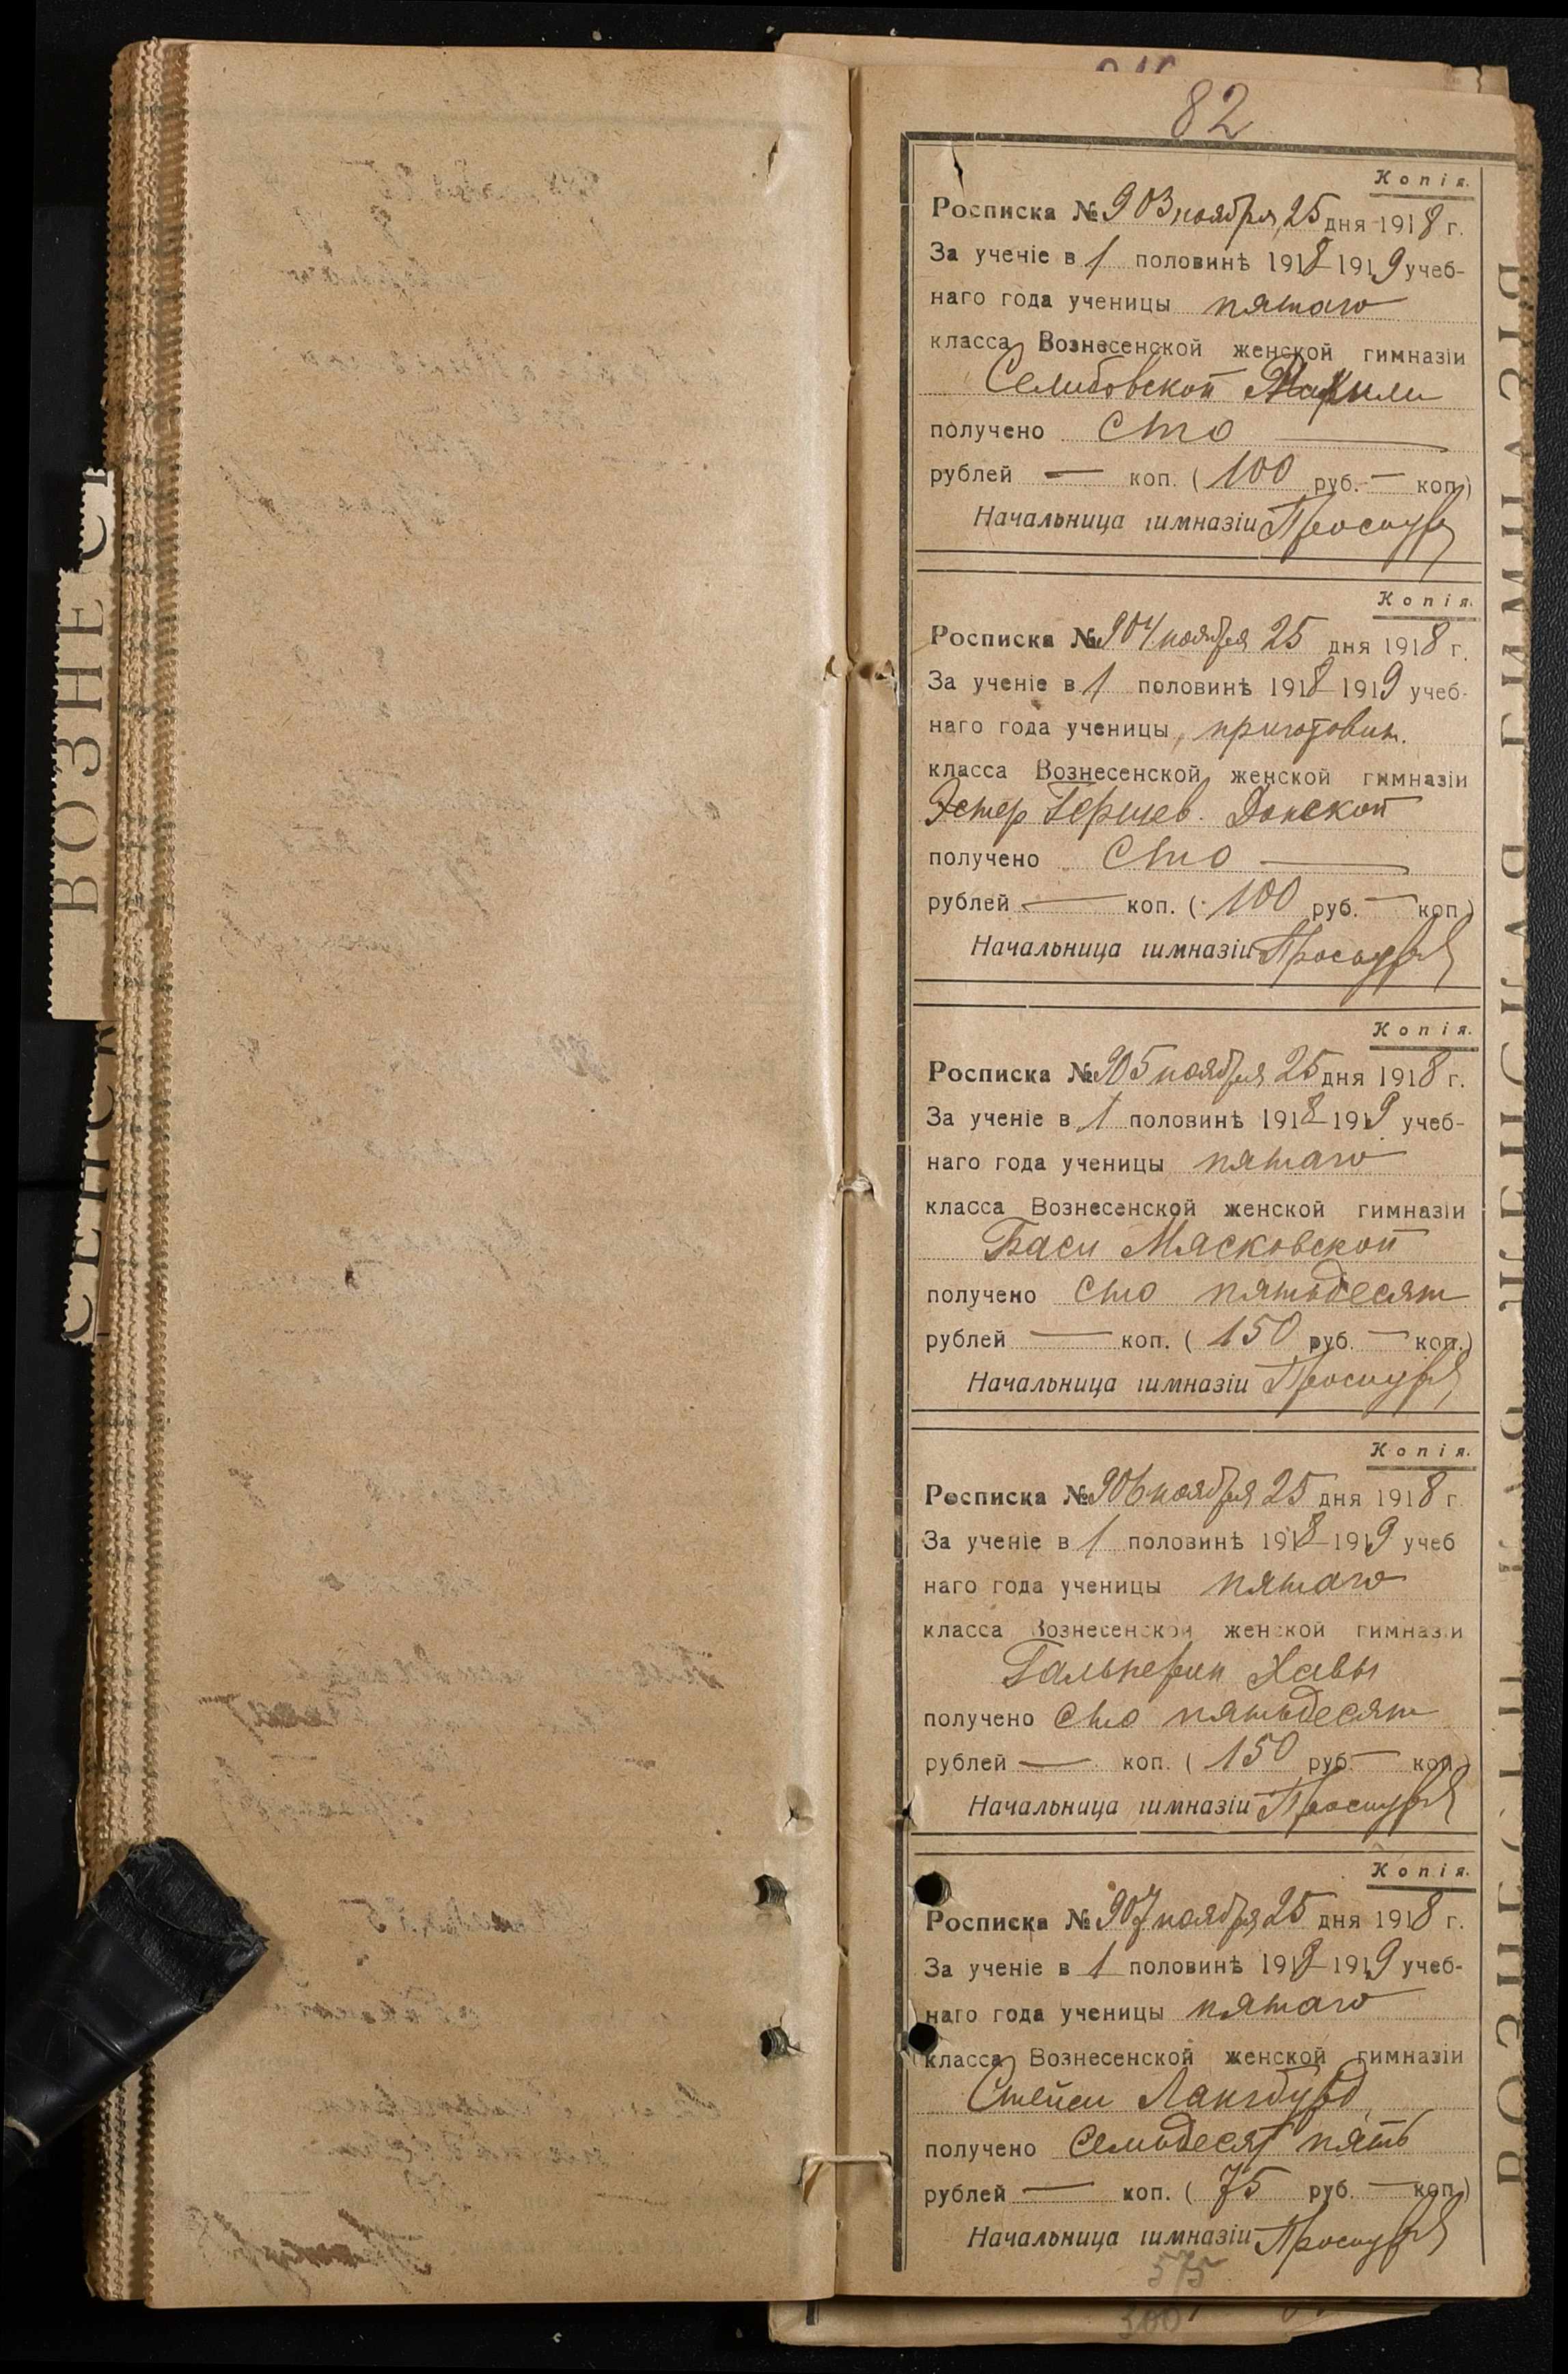 ВОЗНЕ
82
Копія.
Росписка № 903 ноября 25 дня 1918 г.
За ученіе в 1 половинѣ 1918–1919 учеб-
наго года ученицы пятаго
класса Вознесенской женской гимназіи
Селибовской Рахили
получено сто —
рублей — коп. (100 руб. — коп.)
Начальница гимназіи
Копія.
Росписка № 904 ноября 25 дня 1918 г.
За ученіе в 1 половинѣ 1918–1919 учеб-
наго года ученицы приготовит.
класса Вознесенской женской гимназіи
Эстер Гершев. Донской
получено сто —
рублей — коп. (100 руб. — коп.)
Начальница гимназіи
Копія.
Росписка № 905 ноября 25 дня 1918 г.
За ученіе в 1 половинѣ 1918–1919 учеб-
наго года ученицы пятаго
класса Вознесенской женской гимназіи
Баси Мясковской
получено сто пятьдесят
рублей — коп. (150 руб. — коп.)
Начальница гимназіи
Копія.
Росписка № 906 ноября 25 дня 1918 г.
За ученіе в 1 половинѣ 1918–1919 учеб
наго года ученицы пятаго
класса Вознесенской женской гимназіи
Гальперин Хавы
получено сто пятьдесят
рублей — коп. (150 руб. — коп.)
Начальница гимназіи
Копія.
Росписка № 907 ноября 25 дня 1918 г.
За ученіе в 1 половинѣ 1918–1919 учеб-
наго года ученицы пятаго
класса Вознесенской женской гимназіи
Стейси Лангбурд
получено семьдесят пять
рублей — коп. (75 руб. — коп.)
Начальница гимназіи
575
300